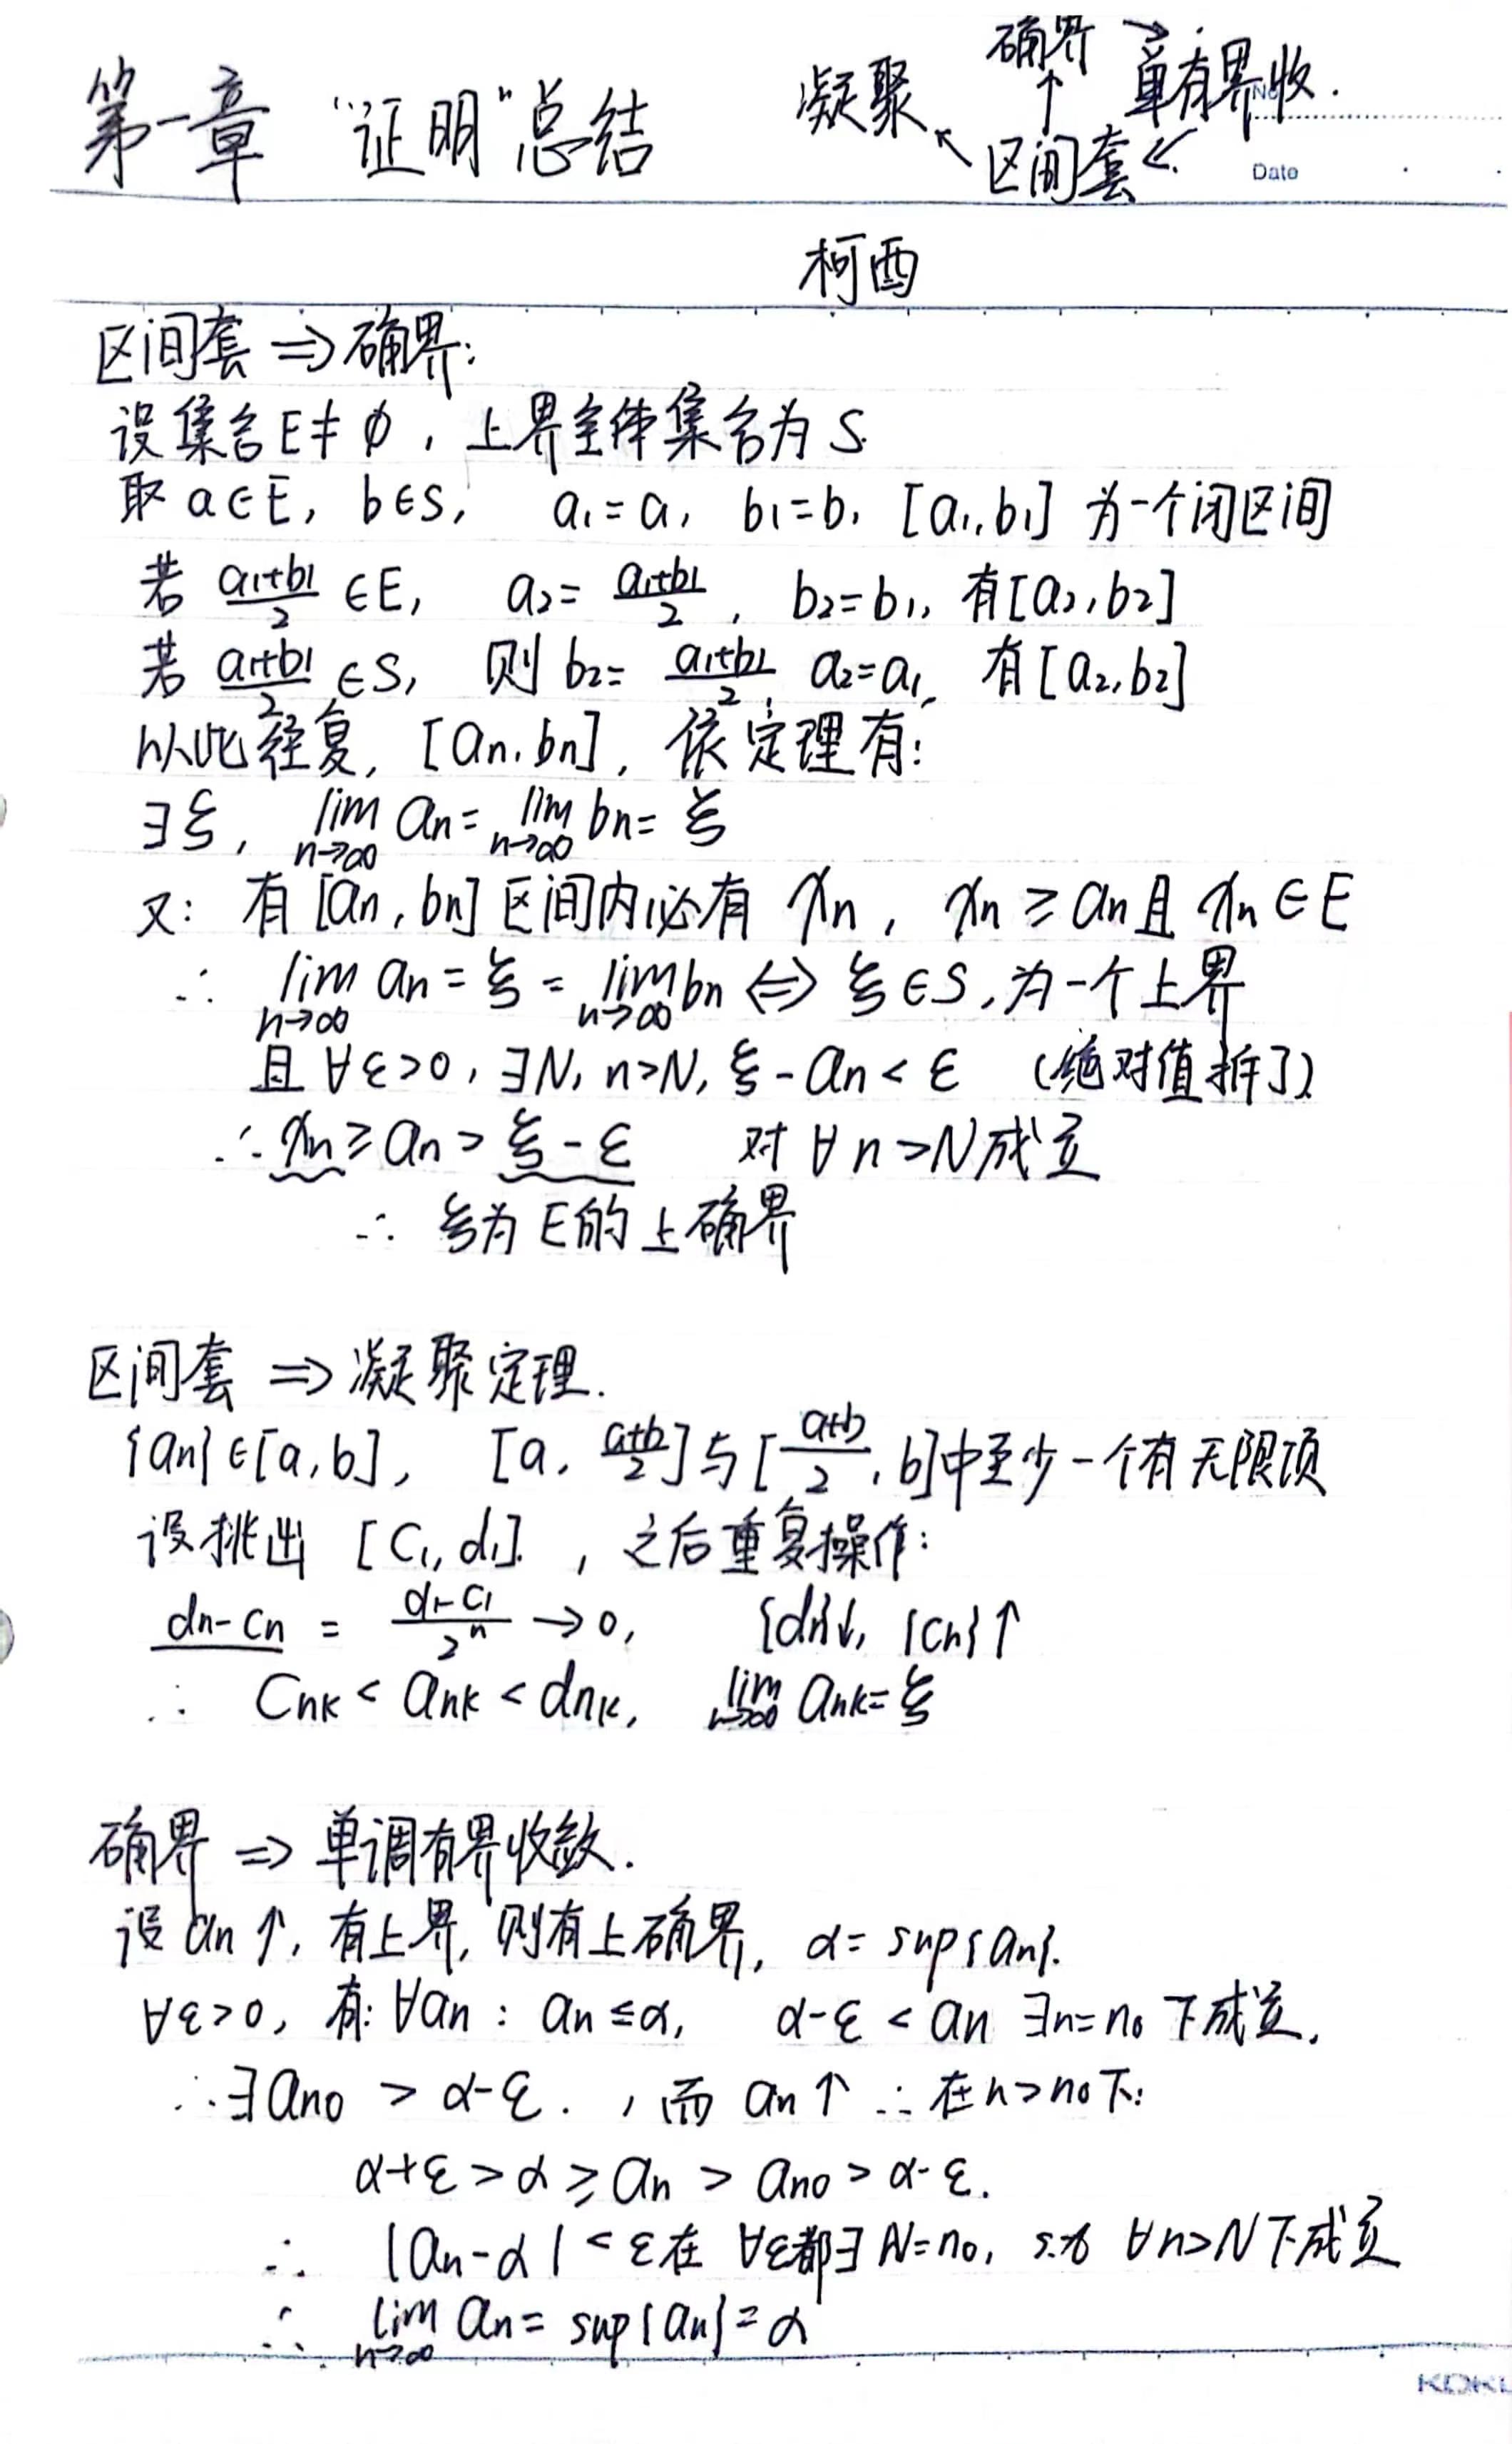 第一章 “证明”总结
确界 → 单有界收.
凝聚 ↖ ↑ ↙
区间套
No.
Date
柯西
区间套 ⇒ 确界:
设集合E≠∅, 上界全体集合为 S.
取 a∈E, b∈S, a₁=a, b₁=b, [a₁,b₁] 为一个闭区间
若 (a₁+b₁)/2 ∈E, a₂= (a₁+b₁)/2, b₂=b₁, 有[a₂,b₂]
若 (a₁+b₁)/2 ∈S, 则 b₂= (a₁+b₁)/2, a₂=a₁, 有[a₂,b₂]
以此往复, [an,bn], 依定理有:
∃ξ, lim n→∞ an= lim n→∞ bn= ξ
又: 有 [an,bn] 区间内必有 xn, xn ≥ an且 xn∈E
∴ lim n→∞ an = ξ = lim n→∞ bn ⇔ ξ∈S, 为一个上界
且 ∀ε>0, ∃N, n>N, ξ-an<ε (绝对值拆了)
∴ xn ≥ an > ξ-ε 对 ∀n>N成立
∴ ξ为 E的上确界
区间套 ⇒ 凝聚定理.
{an}∈[a,b], [a, (a+b)/2]与[(a+b)/2, b]中至少一个有无限项
设挑出 [C₁,d₁], 之后重复操作:
dn-Cn = (d₁-C₁)/2ⁿ →0, {dn}↓, {Cn}↑
∴ Cnk < ank < dnk, lim n→∞ ank=ξ
确界 ⇒ 单调有界收敛.
设 an↑, 有上界, 则有上确界, α= sup{an}.
∀ε>0, 有: ∀an : an≤α, α-ε < an ∃n=n₀ 下成立.
∴ ∃an₀ > α-ε. , 而 an↑ ∴ 在n>n₀下:
α+ε > α ≥ an > an₀ > α-ε.
∴ |an-α| < ε 在 ∀ε都∃ N=n₀, s.t ∀n>N下成立
∴ lim n→∞ an= sup{an}=α